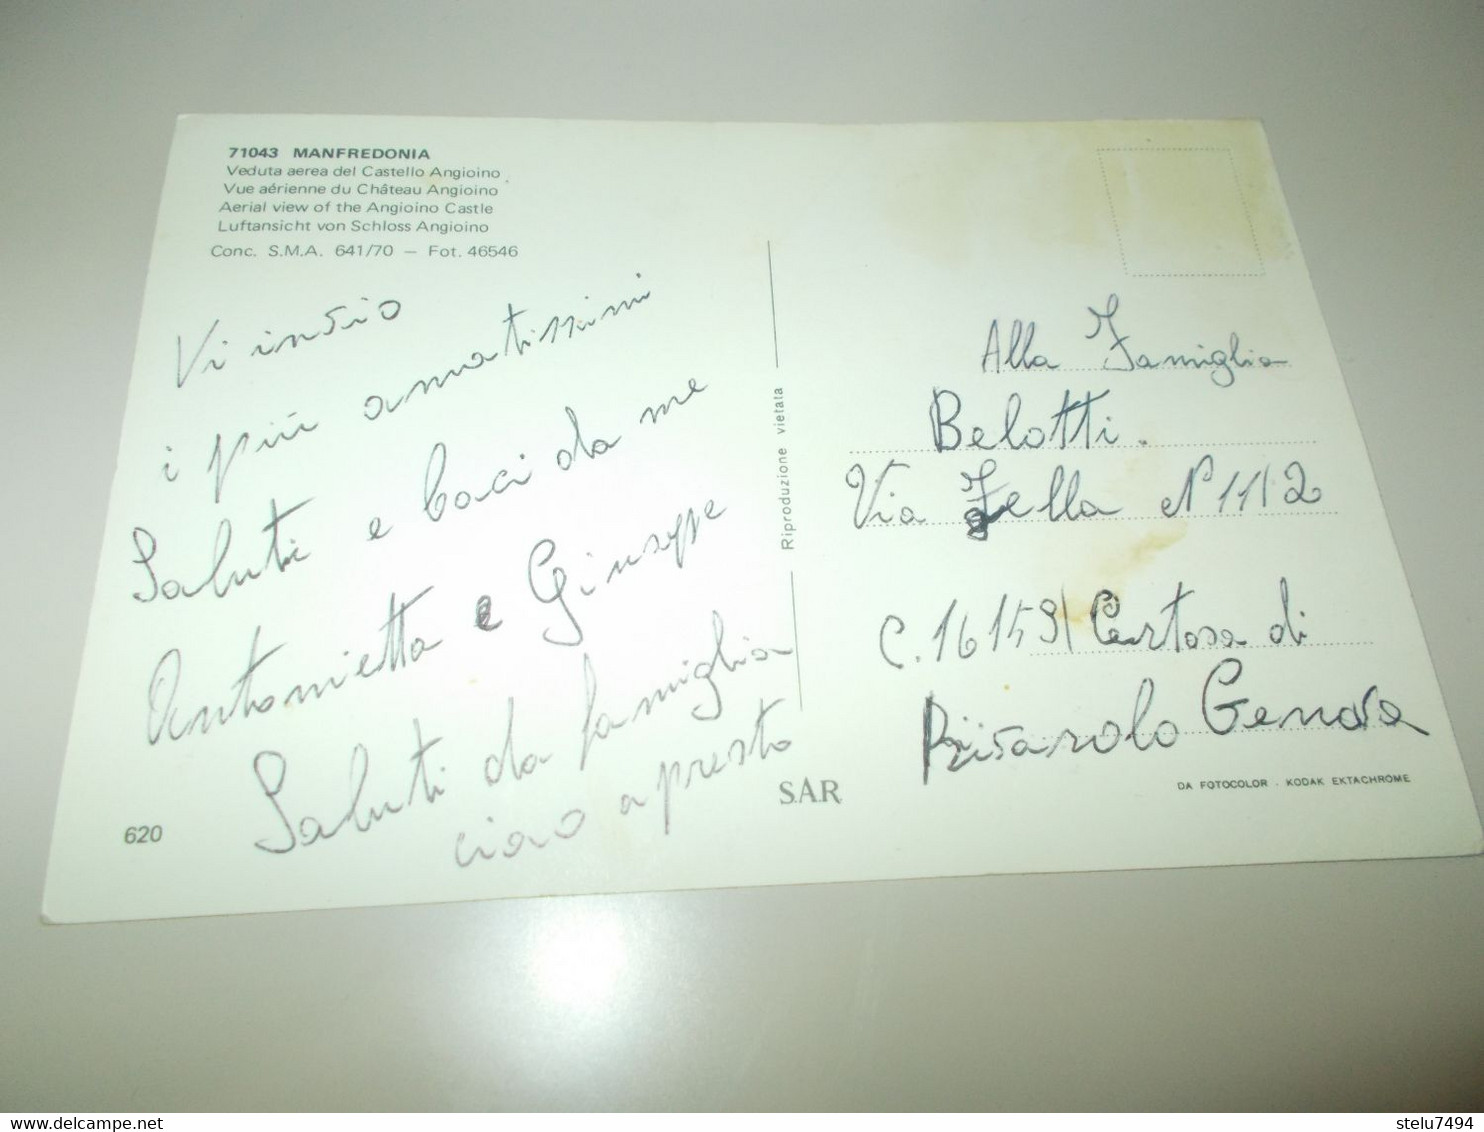 71043 MANFREDONIA
Veduta aerea del Castello Angioino
Vue aérienne du Château Angioino
Aerial view of the Angioino Castle
Luftansicht von Schloss Angioino
Conc. S.M.A. 641/70 — Fot. 46546
Vi invio
i più amatissimi
Saluti e baci da me
Antonietta e Giuseppe
Saluti da famiglia
ciao a presto
620
Riproduzione vietata
S.A.R
Alla Famiglia
Belotti.
Via Zella N 11/2
C. 16159 Certosa di
Rivarolo Genova
DA FOTOCOLOR . KODAK EKTACHROME
delcampe.net
stelu7494